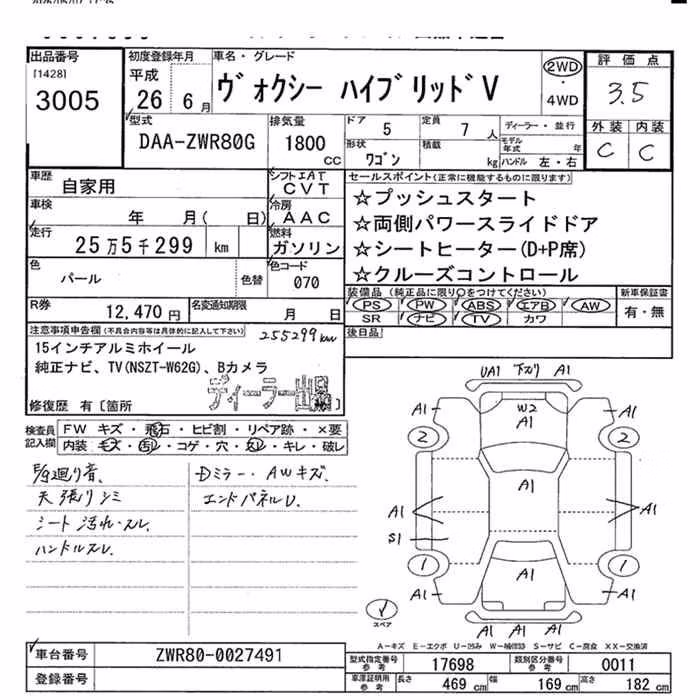 出品番号
[1428]
3005
初度登録年月
平成
26 6月
車名・グレード
ヴォクシー ハイブリッドV
2WD
・
4WD
評価点
3.5
外装 内装
C C
型式
DAA-ZWR80G
排気量
1800
CC
ドア 5
定員 7 人
形状 ワゴン
積載 kg
ディーラー・並行
モデル年式 年
ハンドル 左・右
車歴
自家用
シフト FAT
CVT
車検
年 月( 日)
冷房
AAC
走行
25万5千299 km
燃料
ガソリン
色
パール
色替
色コード
070
R券
12,470円
名変通知期限
月 日
セールスポイント(正常に機能するものに限ります)
☆プッシュスタート
☆両側パワースライドドア
☆シートヒーター(D+P席)
☆クルーズコントロール
装備品 (純正品に限り○をつけてください)
PS PW ABS エアB AW
SR ナビ TV カワ
新車保証書
有・無
後日品
注意事項申告欄(不具合内容等は具体的に記入して下さい)
255299km
15インチアルミホイール
純正ナビ、TV(NSZT-W62G)、Bカメラ
ディーラー出品
修復歴 有〔箇所 〕
検査員記入欄
FW キズ・飛石・ヒビ割・リペア跡・×要
内装:キズ・汚レ・コゲ・穴・スレ・キレ・破レ
天張りシミ
シート汚れ・スレ
ハンドルスレ.
Dミラー・AWキズ.
エンドパネルU.
UA1 下スリ A1
A1 W2 A1
A1
2 2
A1
A1 A1
S1
1 1
A1
A1 A1
A1 A1 A1
スペア
A-キズ E-エクボ U-凹み W-補修跡 S-サビ C-腐食 XX-交換済
車台番号
ZWR80-0027491
登録番号
型式指定番号
参考
17698
類別区分番号
参考
0011
車庫証明用
参考
長さ 469 cm
幅 169 cm
高さ 182 cm